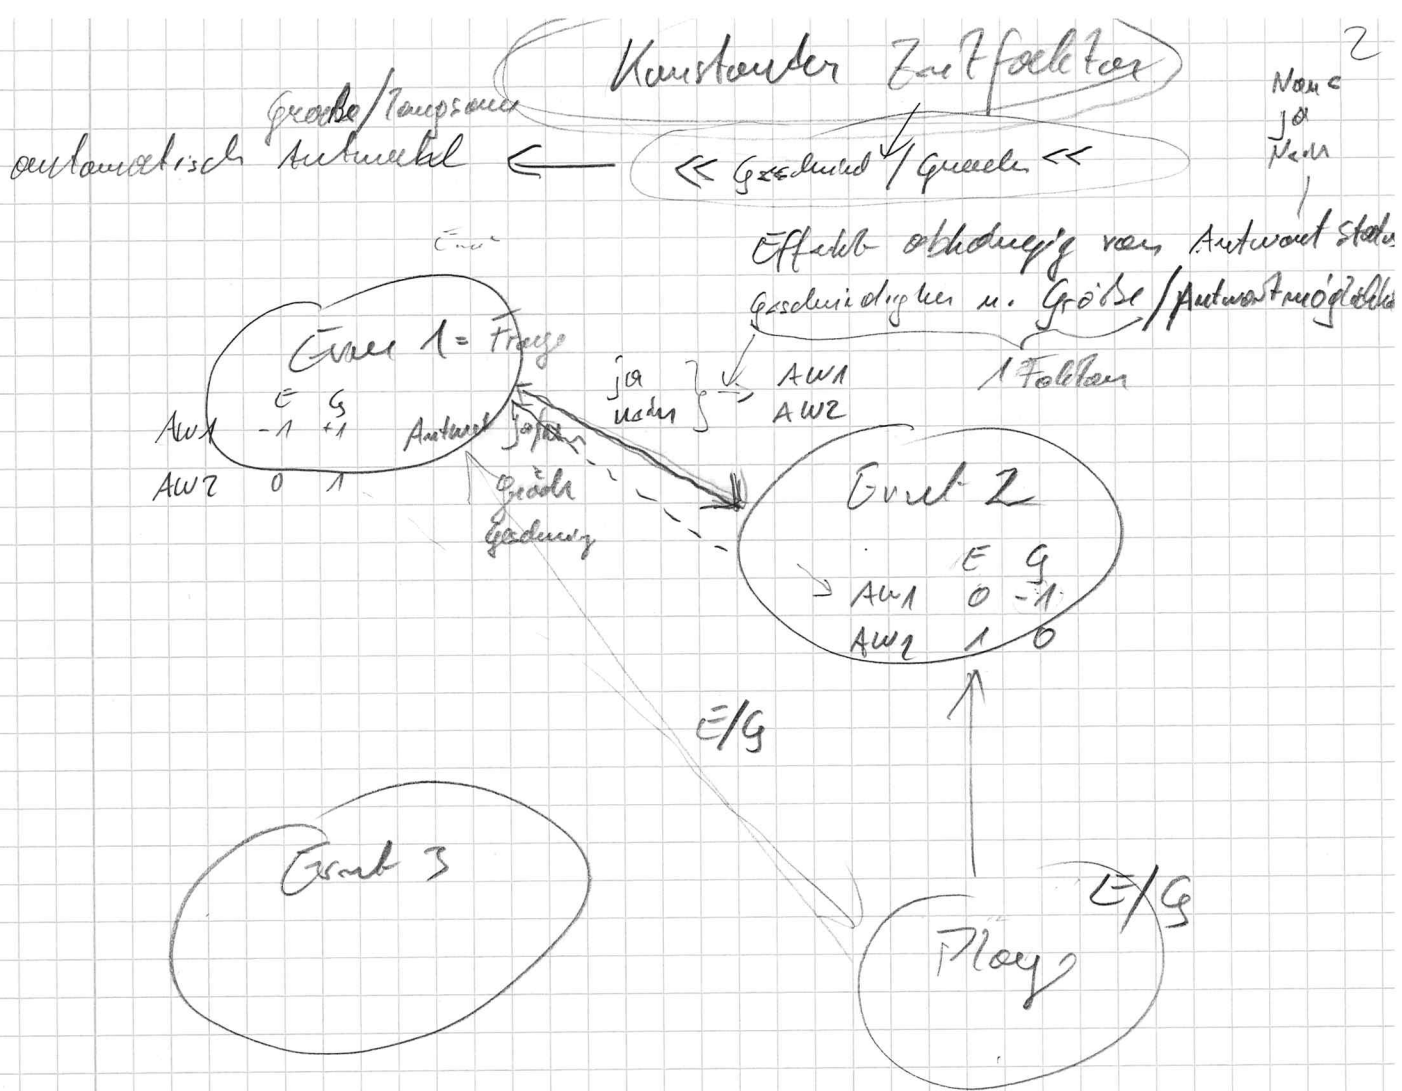 2
Konstanter Zeitfaktor
None
ja
Nein
Größe/langsam
automatisch Antwort
<< Geschwind/Größe <<
Effekt abhängig vom Antwortstatus
Geschwindigkeit u. Größe/Antwortmöglichk
1 Faktor
Event
Event 1 = Frage
E G
AW1 -1 +1 Antwort ja/nein
AW2 0 1
Größe
Geschwin
ja
nein
AW1
AW2
Event 2
E G
AW1 0 -1
AW2 1 0
E/G
Event 3
E/G
Play